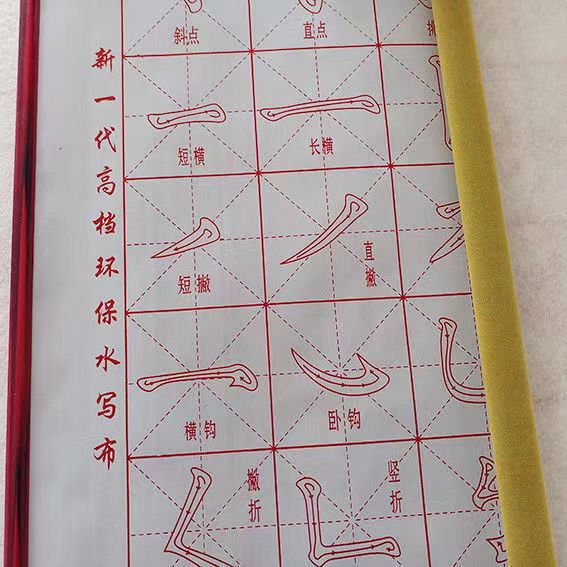 新一代高档环保水写布
斜点
直点
短横
长横
短撇
直撇
横钩
卧钩
撇折
竖折